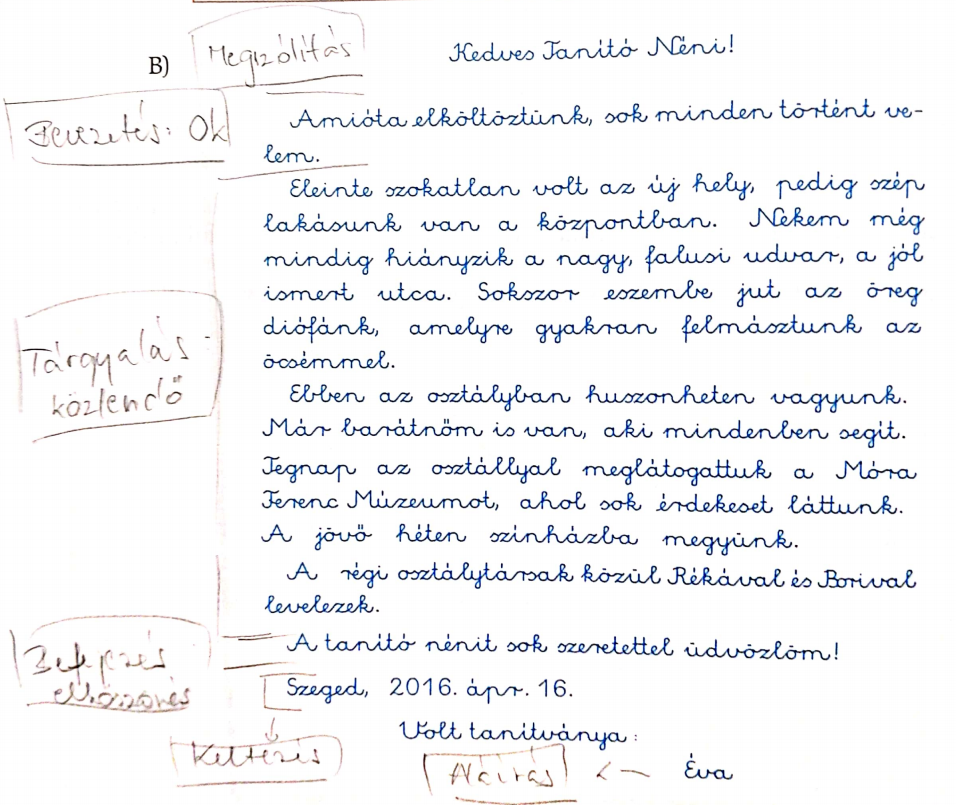 B) Megszólítás Kedves Tanító Néni!
Bevezetés: Ok
Amióta elköltöztünk, sok minden történt ve-
lem.
Eleinte szokatlan volt az új hely, pedig szép
lakásunk van a központban. Nekem még
mindig hiányzik a nagy, falusi udvar, a jól
ismert utca. Sokszor eszembe jut az öreg
diófánk, amelyre gyakran felmásztunk az
öcsémmel.
Tárgyalás:
közlendő
Ebben az osztályban huszonheten vagyunk.
Már barátnőm is van, aki mindenben segít.
Tegnap az osztállyal meglátogattuk a Móra
Ferenc Múzeumot, ahol sok érdekeset láttunk.
A jövő héten színházba megyünk.
A régi osztálytársak közül Rékával és Borival
levelezek.
Befejezés
elköszönés
A tanító nénit sok szeretettel üdvözlöm!
Szeged, 2016. ápr. 16.
Keltezés
Volt tanítványa:
Aláírás Éva